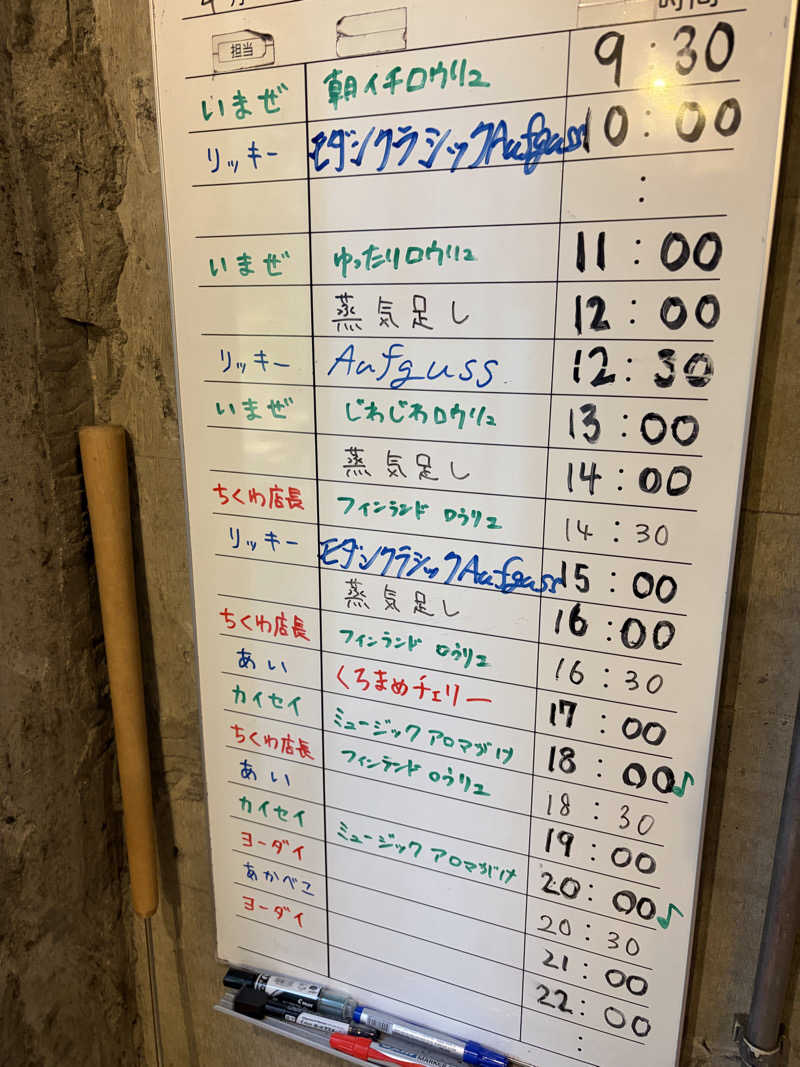 担当 時間
いまぜ 朝イチロウリュ 9:30
リッキー モダンクラシックAufguss 10:00
:
いまぜ ゆったりロウリュ 11:00
蒸気足し 12:00
リッキー Aufguss 12:30
いまぜ じわじわロウリュ 13:00
蒸気足し 14:00
ちくわ店長 フィンランド ロウリュ 14:30
リッキー モダンクラシックAufguss 15:00
蒸気足し 16:00
ちくわ店長 フィンランド ロウリュ 16:30
あい くろまめチェリー 17:00
カイセイ ミュージック アロマがけ 18:00♪
ちくわ店長 フィンランド ロウリュ 18:30
あい 19:00
カイセイ ミュージック アロマがけ 20:00♪
ヨーダイ 20:30
あかべこ 21:00
ヨーダイ 22:00
: